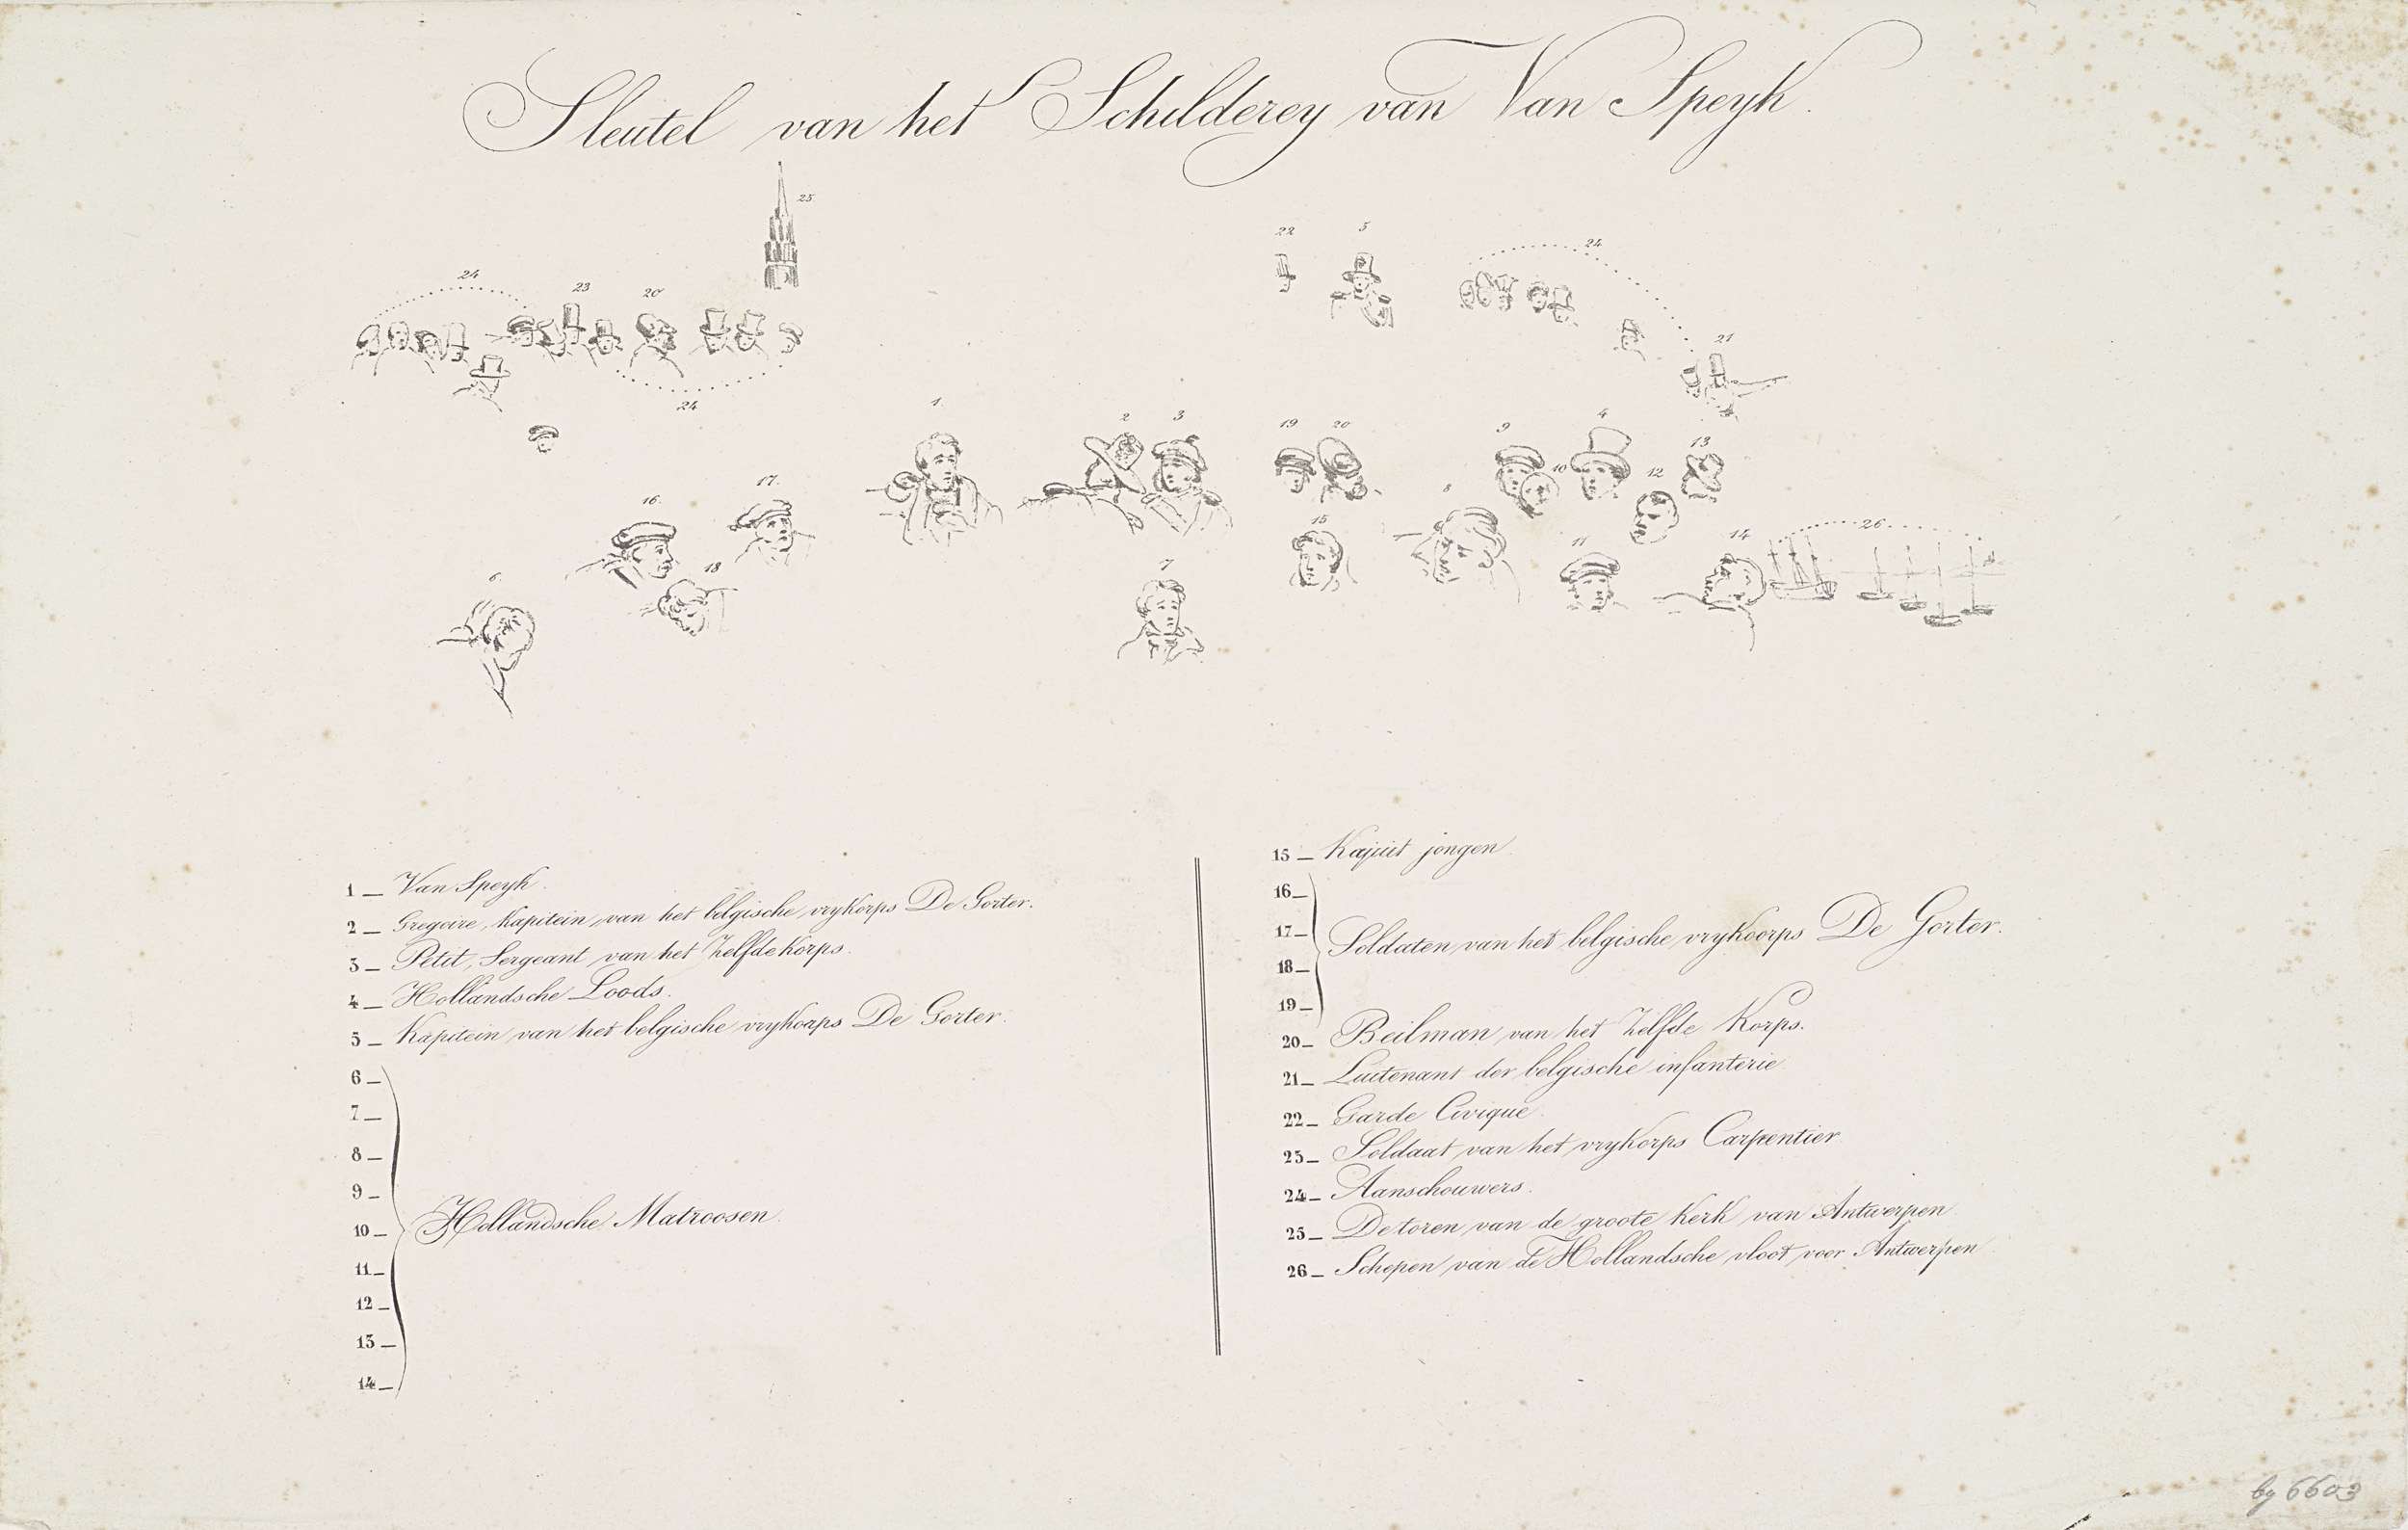 Sleutel van het Schilderey van Van Speyk.
25
22 5 24
24 23 20
21
24
1. 2 3 19 20 9 4 13
10 12
16. 17. 8 15 11 14 26
6. 18 7
1 _ Van Speyk.
2 _ Gregoire, Kapitein van het belgische vrykorps De Gorter.
3 _ Petit, Sergeant van het Zelfde korps.
4 _ Hollandsche Loods.
5 _ Kapitein van het belgische vrykorps De Gorter.
6 _
7 _
8 _
9 _
10 _ Hollandsche Matroosen.
11 _
12 _
13 _
14 _
15 _ Kajuit jongen
16 _
17 _ Soldaten van het belgische vrykoorps De Gorter.
18 _
19 _
20 _ Beilman van het Zelfde Korps.
21 _ Luitenant der belgische infanterie
22 _ Garde Civique.
23 _ Soldaat van het vrykorps Carpentier
24 _ Aanschouwers.
25 _ De toren van de groote Kerk van Antwerpen
26 _ Schepen van de Hollandsche vloot voor Antwerpen
by 6603